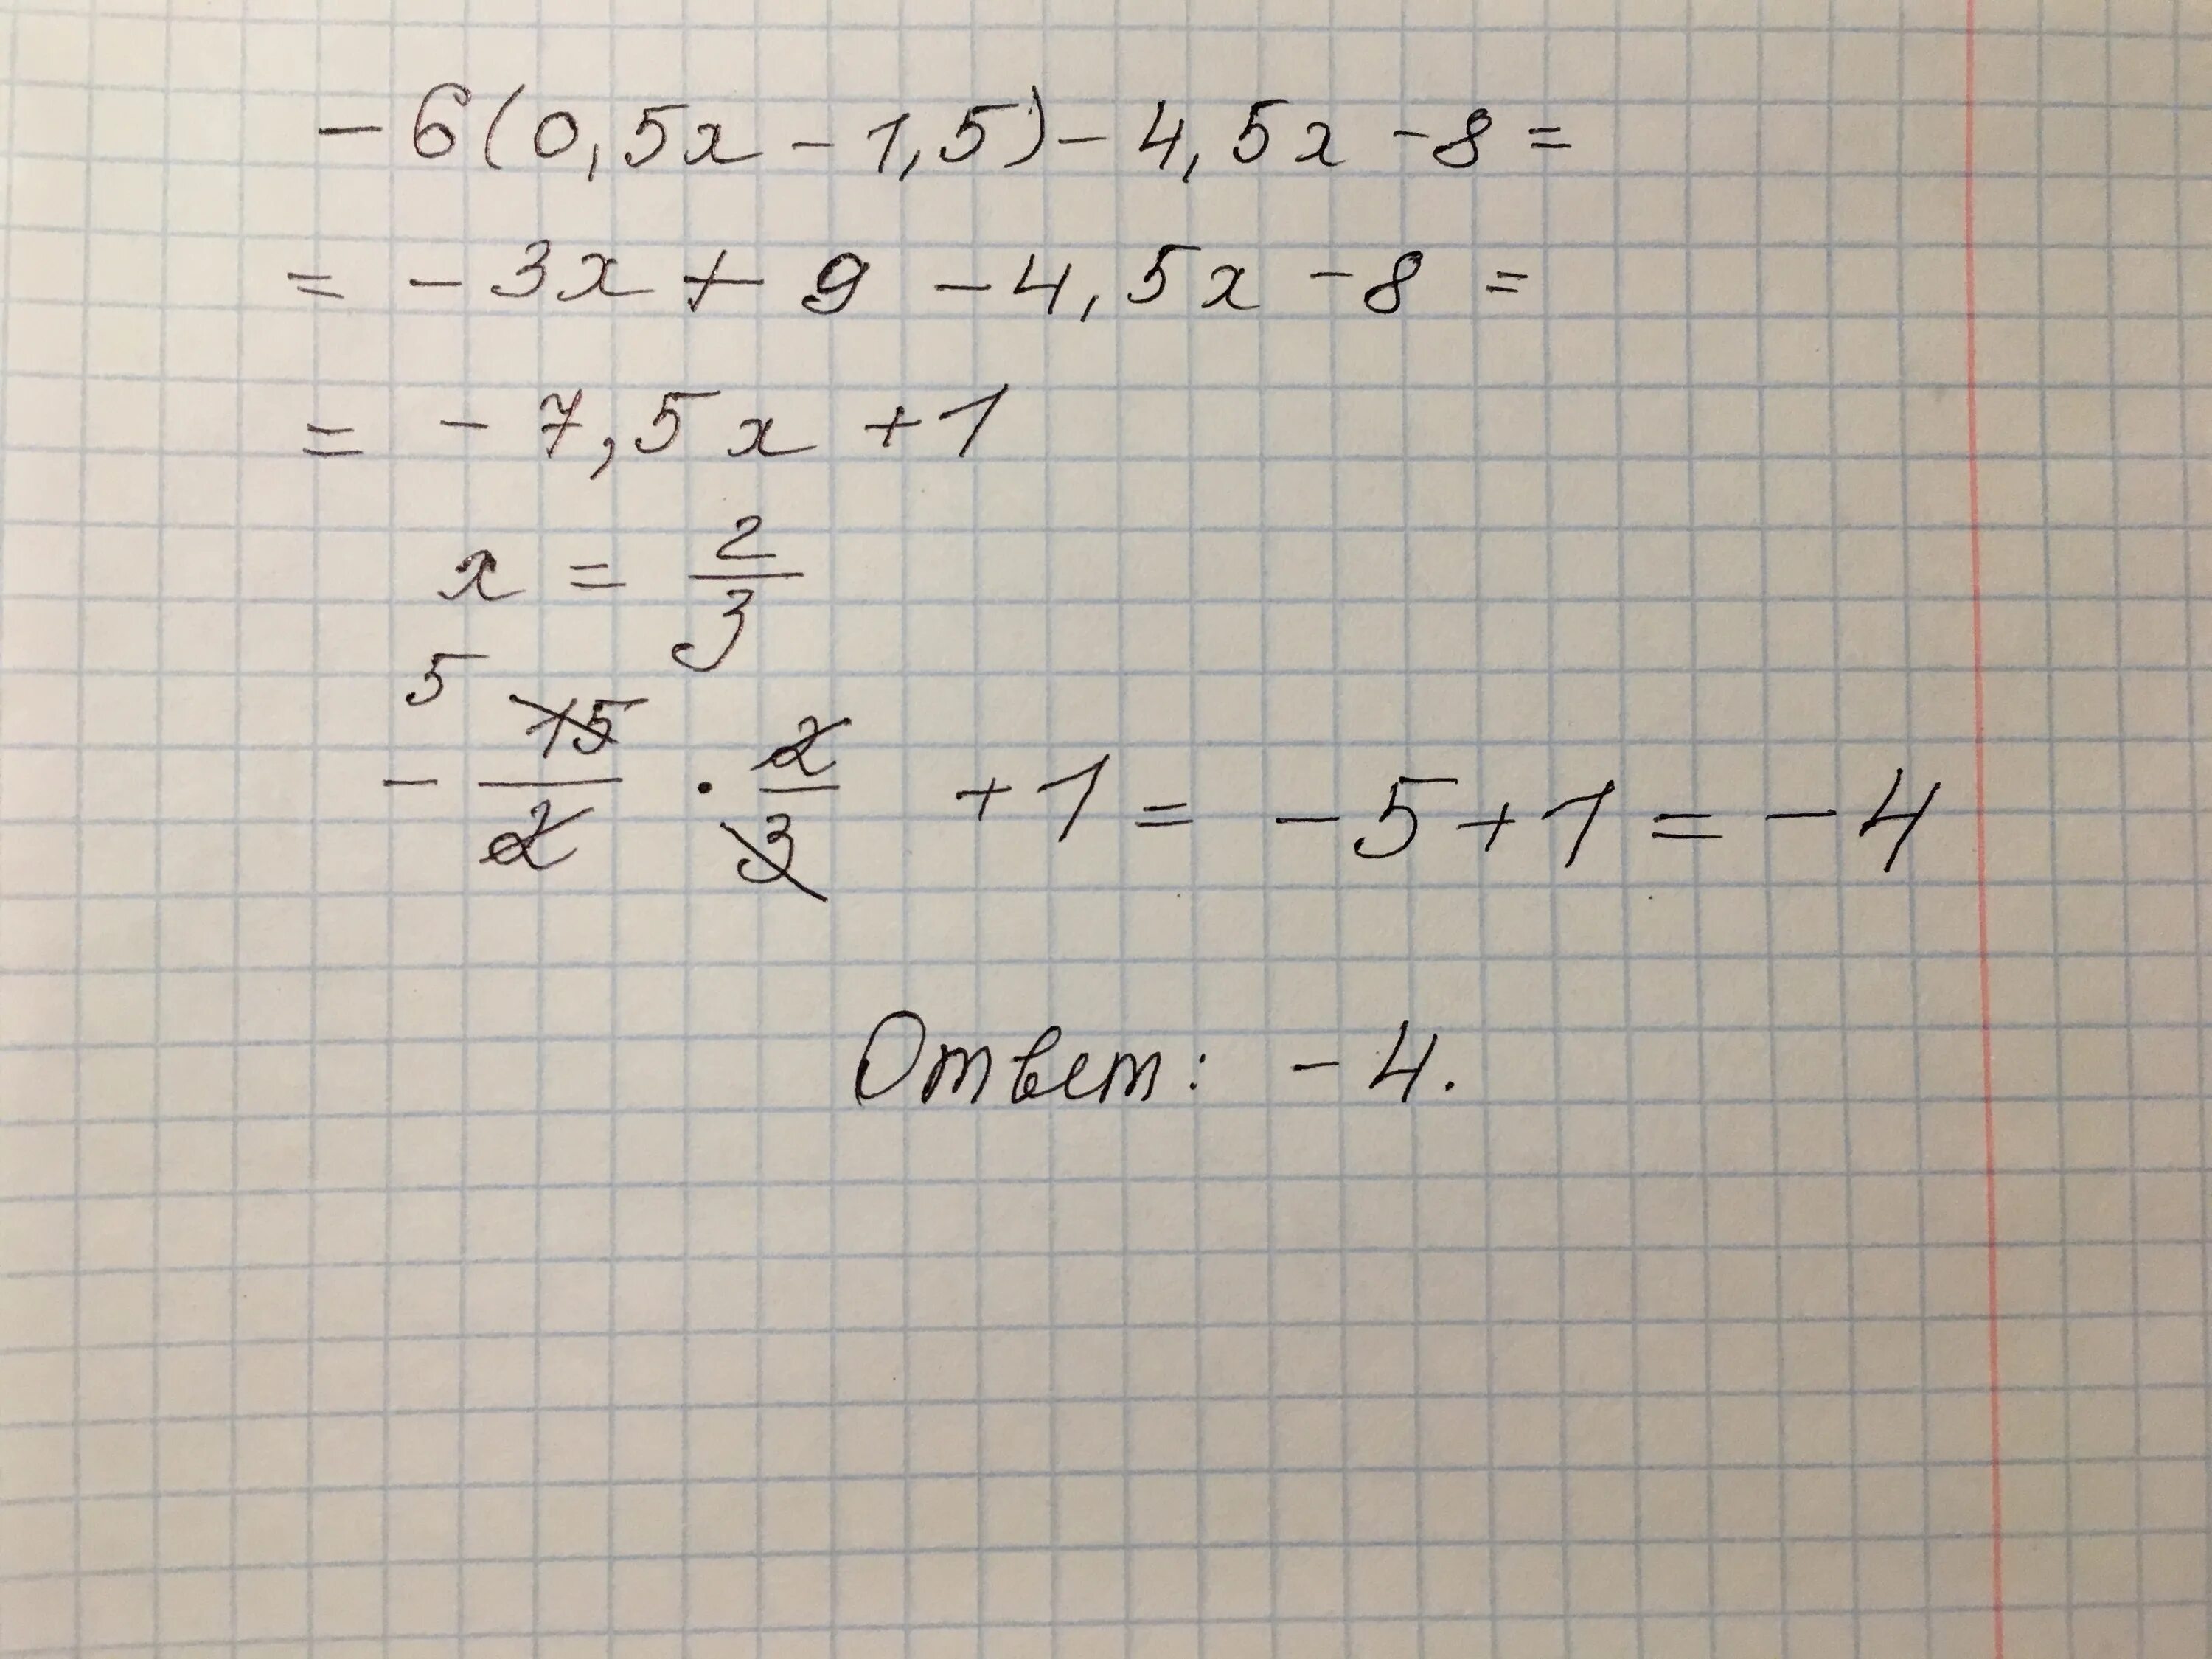 -6(0,5x-1,5)-4,5x-8=
= -3x+9-4,5x-8=
= -7,5x+1
x = 2/3
5
- 15/2 · 2/3 +1 = -5+1 = -4
Ответ: -4.